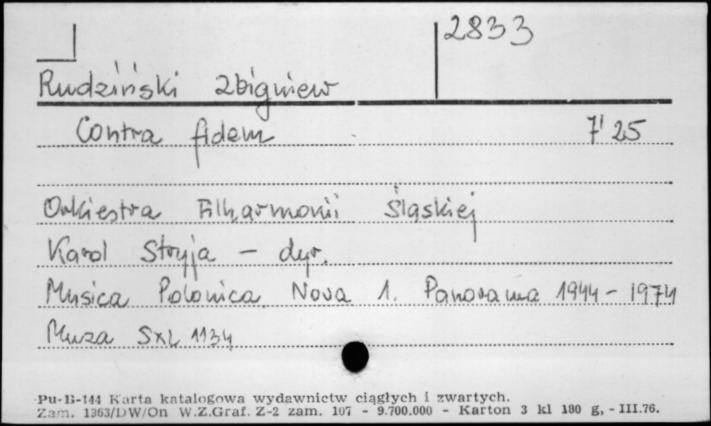 2833
Rudziński Zbigniew
Contra fidem 7'25
Orkiestra Filharmonii Śląskiej
Karol Stryja - dyr.
Musica Polonica Nova 1. Panorama 1944-1974
Muza SXL 1134
Pu-B-144 Karta katalogowa wydawnictw ciągłych i zwartych.
Zam. 1363/DW/On W.Z.Graf. Z-2 zam. 107 - 9.700.000 - Karton 3 kl 180 g, - III.76.